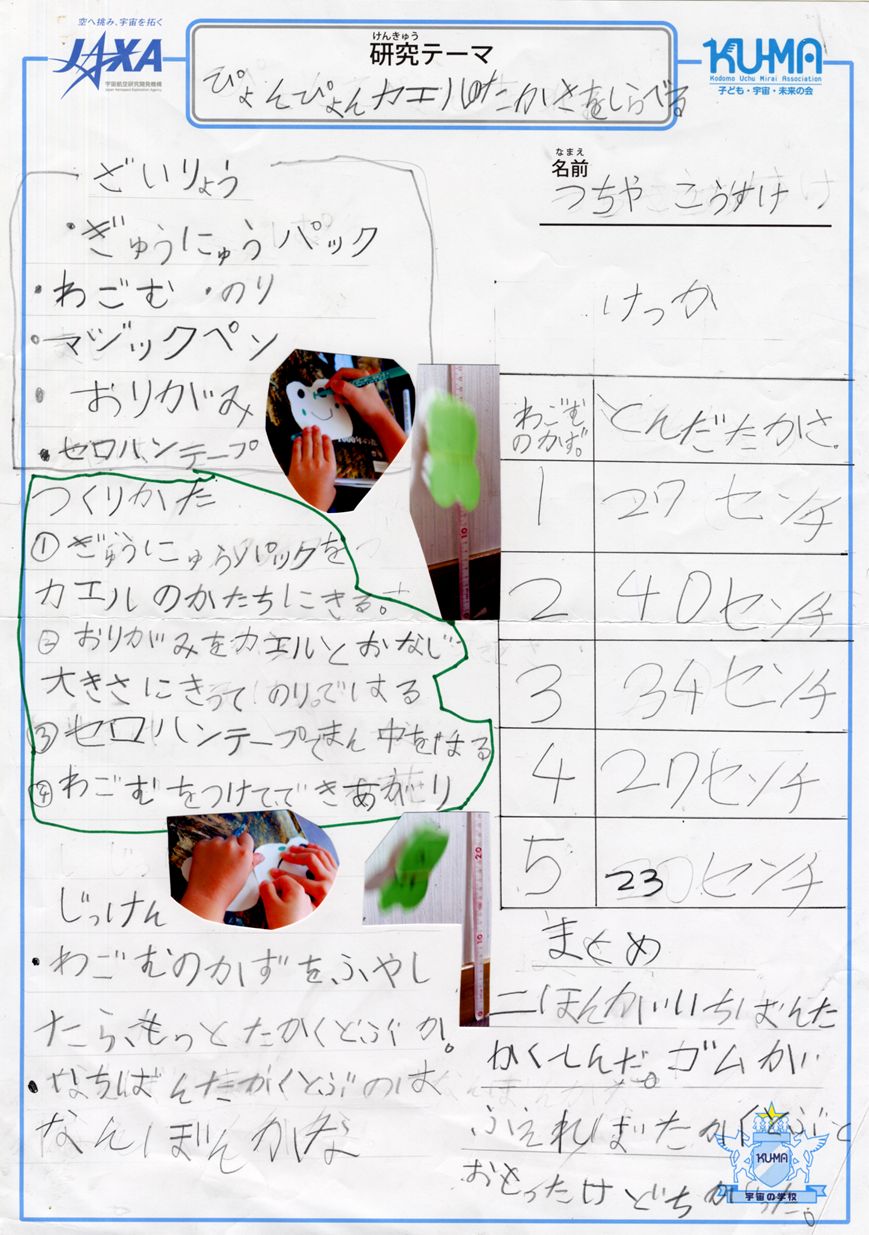 空へ挑み、宇宙を拓く
JAXA
宇宙航空研究開発機構
Japan Aerospace Exploration Agency
けんきゅう
研究テーマ
ぴょんぴょんカエルのたかさをしらべる
KU-MA
Kodomo Uchu Mirai Association
子ども・宇宙・未来の会
なまえ
名前
つちや こうすけ
ざいりょう
・ぎゅうにゅうパック
・わごむ ・のり
・マジックペン
・おりがみ
・セロハンテープ
つくりかた
①ぎゅうにゅうパックを
カエルのかたちにきる。
②おりがみをカエルとおなじ
大きさにきってのりではる
③セロハンテープでまん中をはる
④わごむをつけてできあがり
じっけん
・わごむのかずをふやし
たら、もっとたかくとぶか。
ちばんたかくとぶのは
なんぼんかな
けっか
わごむ
のかず。
とんだたかさ。
1 27センチ
2 40センチ
3 34センチ
4 27センチ
5 23センチ
まとめ
二ほんがいちばんた
かくとんだ。ゴムが
ふえればたかくとぶと
おもったけどちがった。
KUMA
宇宙の学校